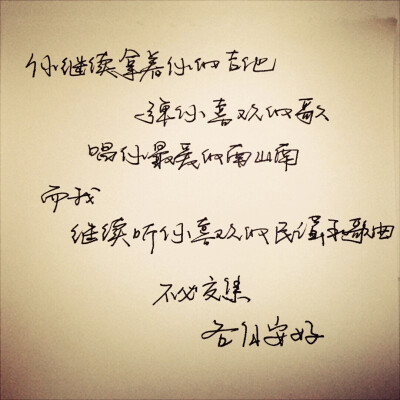 你继续拿着你的吉他
弹你喜欢的歌
唱你最爱的南山南
而我
继续听你喜欢的民谣和歌曲
不必交集
各自安好